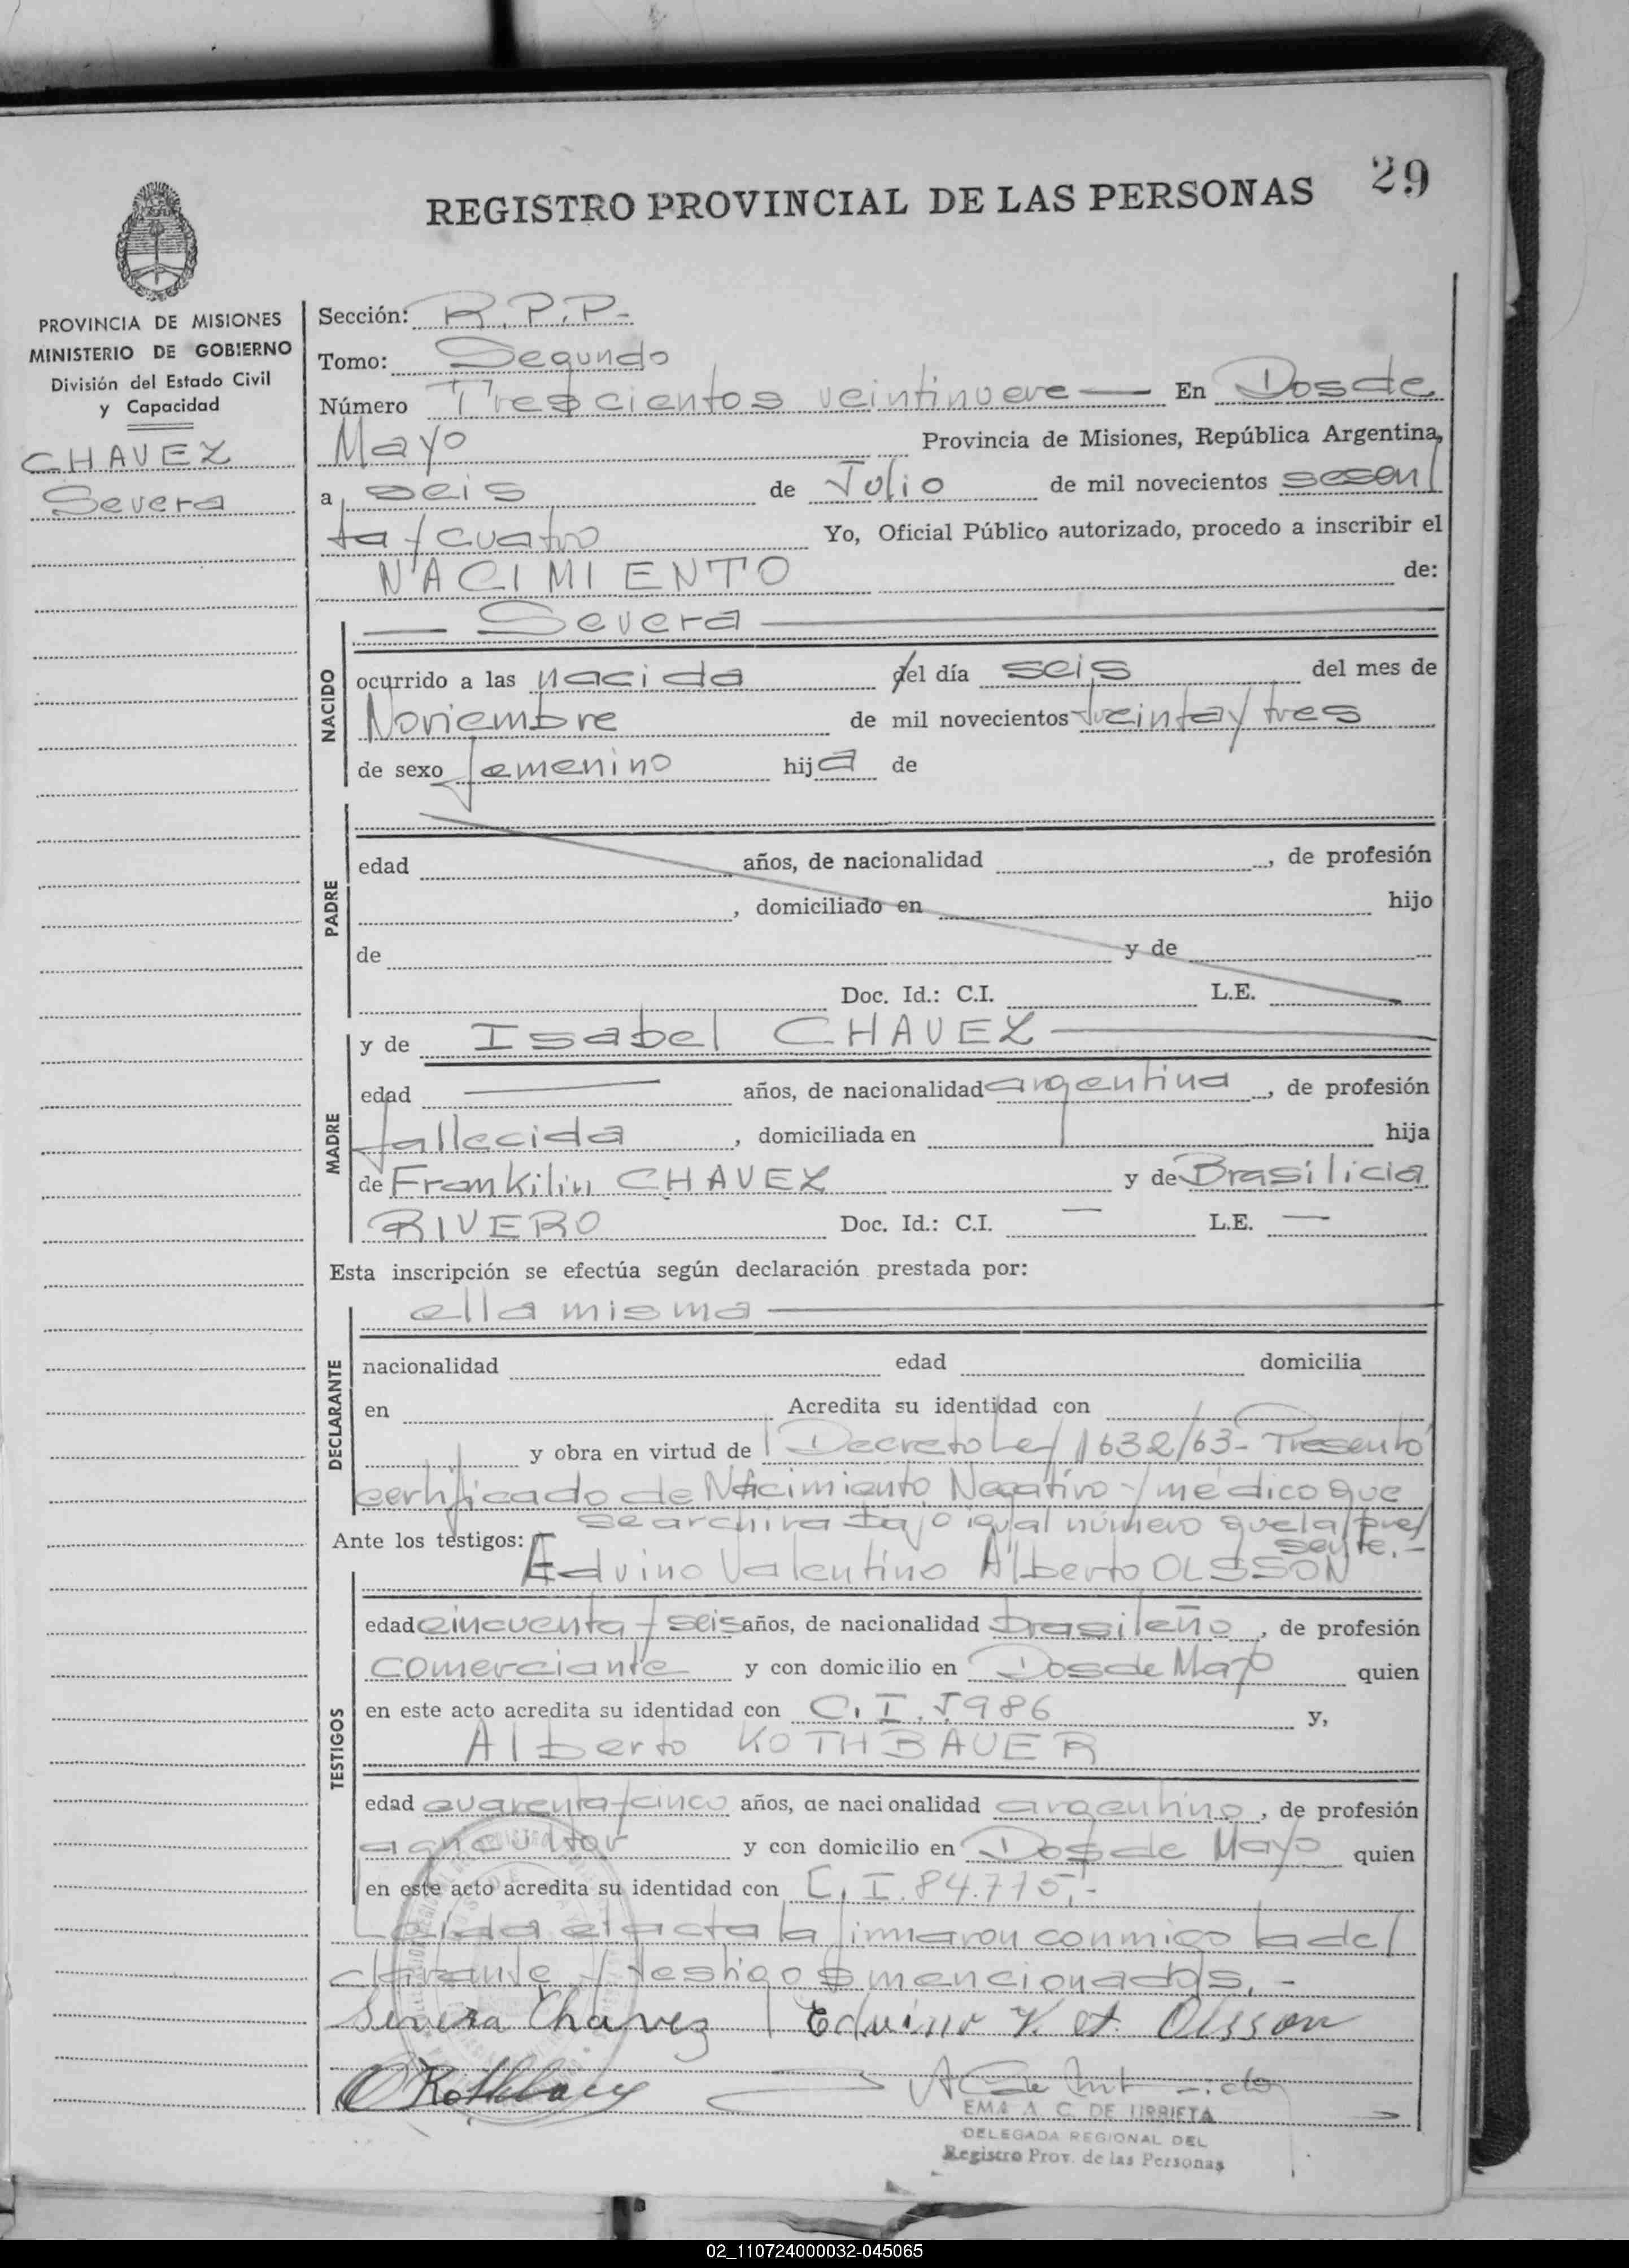 29
REGISTRO PROVINCIAL DE LAS PERSONAS
PROVINCIA DE MISIONES
MINISTERIO DE GOBIERNO
División del Estado Civil
y Capacidad
CHAVEZ
Severa
Sección: R.P.P.-
Tomo: Segundo
Número Trescientos veintinueve — En Dos de
Mayo Provincia de Misiones, República Argentina,
a seis de Julio de mil novecientos sesen/
ta y cuatro Yo, Oficial Público autorizado, procedo a inscribir el
NACIMIENTO de:
NACIDO
— Severa —
ocurrido a las nacida del día seis del mes de
Noviembre de mil novecientos treinta y tres
de sexo femenino hija de
PADRE
edad años, de nacionalidad , de profesión
, domiciliado en hijo
de y de
Doc. Id.: C.I. L.E.
MADRE
y de Isabel CHAVEZ —
edad — años, de nacionalidad argentina, de profesión
fallecida, domiciliada en hija
de Frankilin CHAVEZ y de Brasilicia
RIVERO Doc. Id.: C.I. — L.E. —
Esta inscripción se efectúa según declaración prestada por:
DECLARANTE
ella misma —
nacionalidad edad domicilia
en Acredita su identidad con
y obra en virtud de Decreto Ley 1632/63- Presento
certificado de Nacimiento Negativo y médico que
se archiva bajo igual número que la pre/
sente.-
Ante los testigos:
Edvino Valentino Alberto OLSSON
TESTIGOS
edad cincuenta y seis años, de nacionalidad brasileño, de profesión
comerciante y con domicilio en Dos de Mayo quien
en este acto acredita su identidad con C.I. 5986 y,
Alberto KOTHBAUER
edad cuarenta y cinco años, de nacionalidad argentino, de profesión
agricultor y con domicilio en Dos de Mayo quien
en este acto acredita su identidad con C.I. 84.715.-
Leida el acta la firmaron conmigo la de/
clarante y testigos mencionados.-
Severa Chavez Edvino V. A. Olsson
EMA A. C. DE URRIETA
DELEGADA REGIONAL DEL
Registro Prov. de las Personas
02_110724000032-045065